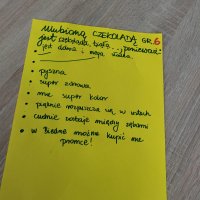 Ulubioną CZEKOLADĄ GR. 6
jest czekolada biała... ponieważ:
• jest dobra i moja
• pyszna
• super zdrowa
• ma super kolor
• pięknie rozpuszcza się w ustach
• cudnie zostaje między zębami
• w Biedrze można kupić na
promce!